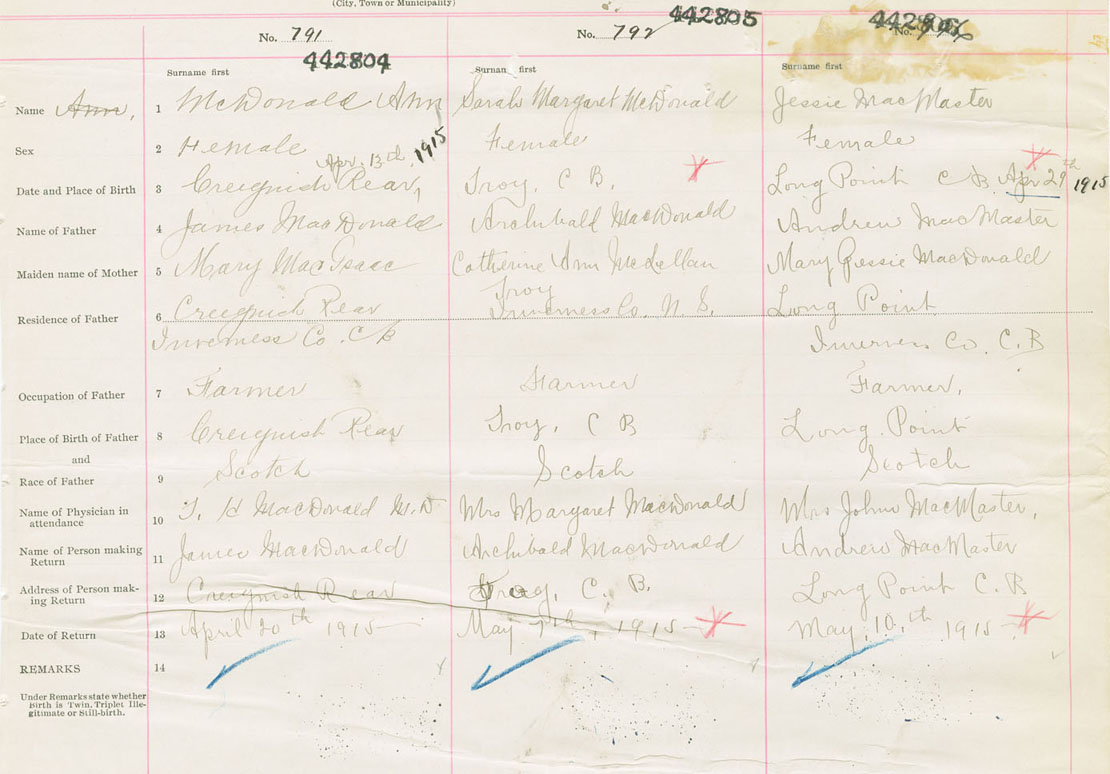 (City, Town or Municipality)
No. 791
No. 792
442805
No.
442804
Surname first
Surname first
Surname first
Name Ann, 1 McDonald Ann Sarah Margaret McDonald Jessie MacMaster
Sex 2 Female Female Female
Apr. 13th 1915
Date and Place of Birth 3 Creignish Rear, Troy, C B. Long Point C B. Apr 29th 1915
Name of Father 4 James MacDonald Archibald MacDonald Andrew MacMaster
Maiden name of Mother 5 Mary MacIsaac Catherine Ann McLellan Mary Jessie MacDonald
Troy
Residence of Father 6 Creignish Rear Inverness Co. N. S. Long Point
Inverness Co. C B Inverness Co. C. B
Occupation of Father 7 Farmer Farmer Farmer,
Place of Birth of Father 8 Creignish Rear Troy, C B Long Point
and
Race of Father 9 Scotch Scotch Scotch
Name of Physician in attendance 10 MacDonald M.D Mrs Margaret MacDonald Mrs John MacMaster,
Name of Person making Return 11 James MacDonald Archibald MacDonald Andrew MacMaster
Address of Person making Return 12 Creignish Rear Troy, C. B. Long Point C. B
Date of Return 13 April 20th 1915 May 1915 May, 10,th 1915
REMARKS 14
Under Remarks state whether
Birth is Twin, Triplet Ille-
gitimate or Still-birth.